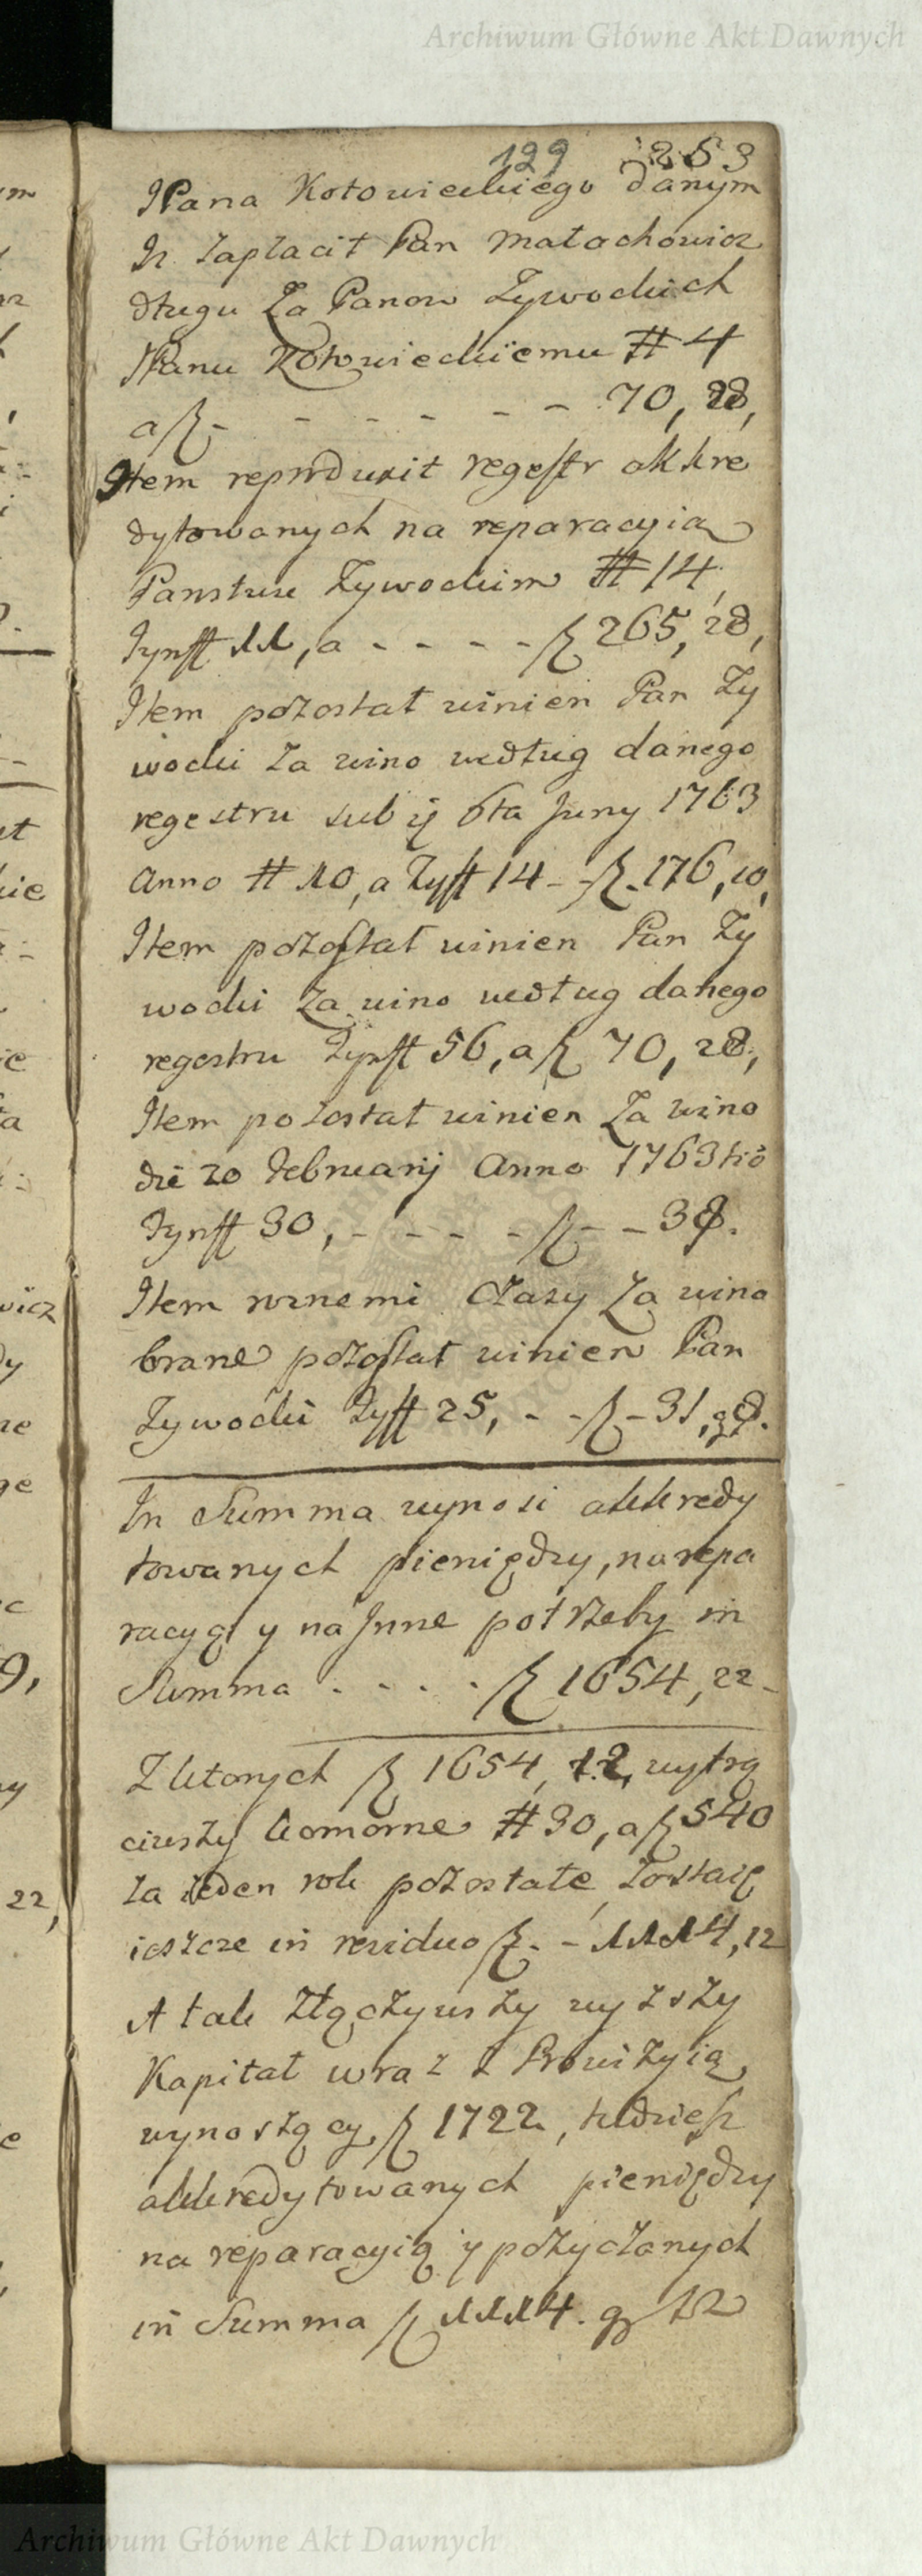 Archiwum Główne Akt Dawnych
129 253
JPana Kotowieckiego danym
Iż zapłacił Pan Małachowicz
długu Za Panow Zywockich
JPanu Kotowieckiemu # 4
a f - - - - - - 70, 28,
Item reproduxit regestr akkre
dytowanych na reparacyią
Panstwu Zywockim # 14,
Tynff 11, a - - - - f 265, 28,
Item pozostał winien Pan Zy
wocki za wino według danego
regestru sub ij 6ta Juny 1763
Anno # 10, a Tyff 14 - f. 176, 10,
Item pozostał winien Pan Zy
wocki Za wino według danego
regestru Tynff 56, a f 70, 28,
Item pozostał winien Za wino
die 20 Februarij Anno 1763tio
Tynff 30, - - - - f - - 38.
Item roznemi Czasy Za wino
brane pozostał winien Pan
Zywocki Tyff 25, - - f - 31, g 8.
In Summa wynosi akkredy
towanych pieniędzy, na repa
racyą y na Inne potrzeby in
Summa . - . - . f 1654, 22 -
Z ktorych f 1654, 12, wytrą
ciwszy komorne # 30, a f 540
za ieden rok pozostałe, zostaię
ieszcze in residuo f. - 1114, 12
A tak złączywszy wyższy
Kapitał wraz z Prowizyią
wynoszący f 1722, tudziesz
akkredytowanych pieniędzy
na reparacyią y pożyczanych
in Summa f 1114. gr 12
22,
Archiwum Główne Akt Dawnych